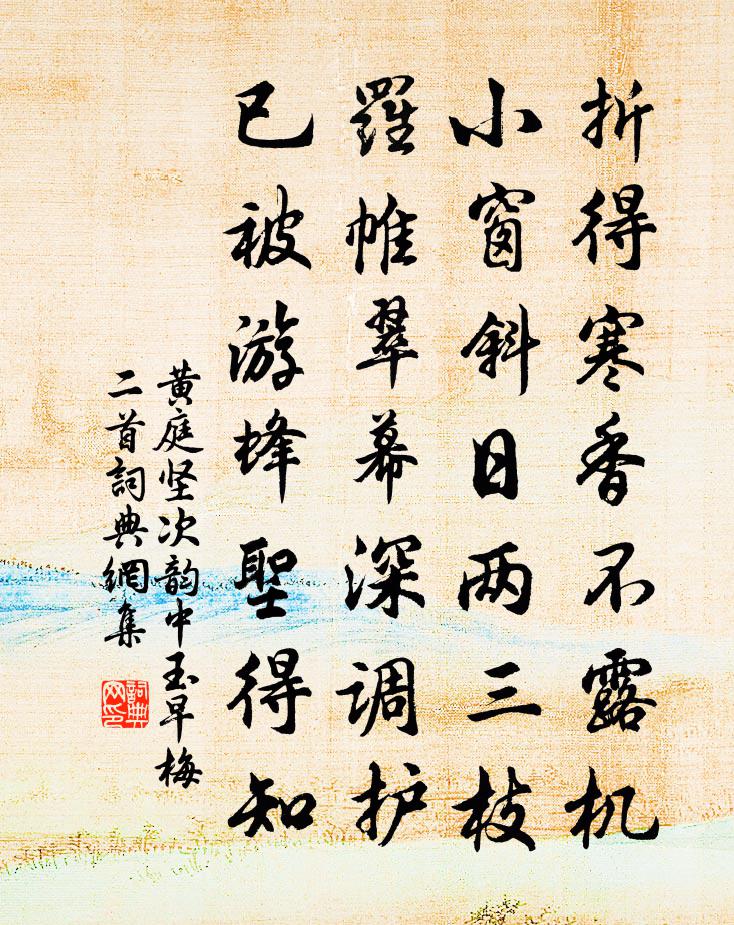 折得寒香不露机
小窗斜日两三枝
羅帷翠幕深调护
已被游蜂聖得知
黄庭坚次韵中玉早梅
二首詞典網集
詞典
网印